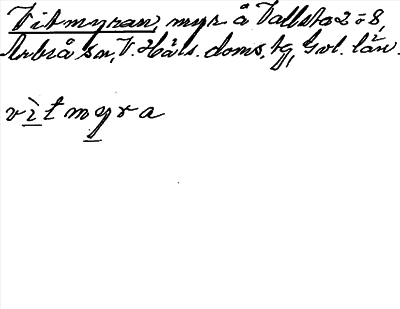 Vitmyran, myr å Vallsta 2=8,
Arbrå sn, V. Häls. doms. tg, Gvl. län.
vìtmyra